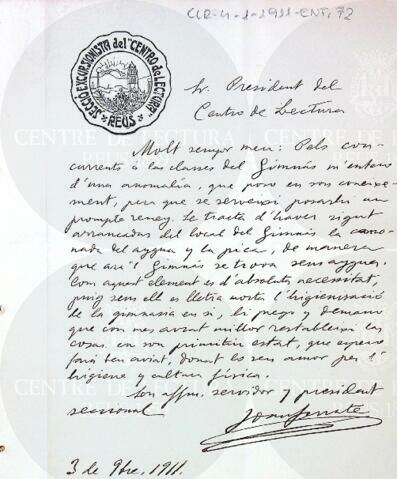 CLR-4-1-1911-ENT, 72
SECCIÓ EXCURSIONISTA del "CENTRO de LECTURA"
REUS
Sr. President del
Centro de Lectura
Molt senyor meu: Pels con-
currents á les classes del Gimnás m'entero
d'una anomalía, que poso en son coneixe-
ment, pera que se serveixi posarhi un
prompte remey. Se tracta d'haver sigut
arrancadas del local del Gimnás la
nada del aygua y la pica, de manera
que ará'l Gimnás se trova sens aygua.
Com aquest element es d'absoluta necessitat,
puig sens ell es lletra morta l'higienisació
de la gimnasia en sí, li prego y demano
que con mes aviat millor restableixi las
cosas en son primitiu estat, que espero
fará ben aviat, donat lo seu amor per l'
higiene y cultura física.
Son affm. servidor y president
seccional
3 de 9bre. 1911.
CENTRE DE LECTURA
REUS
CENTRE DE LECTURA